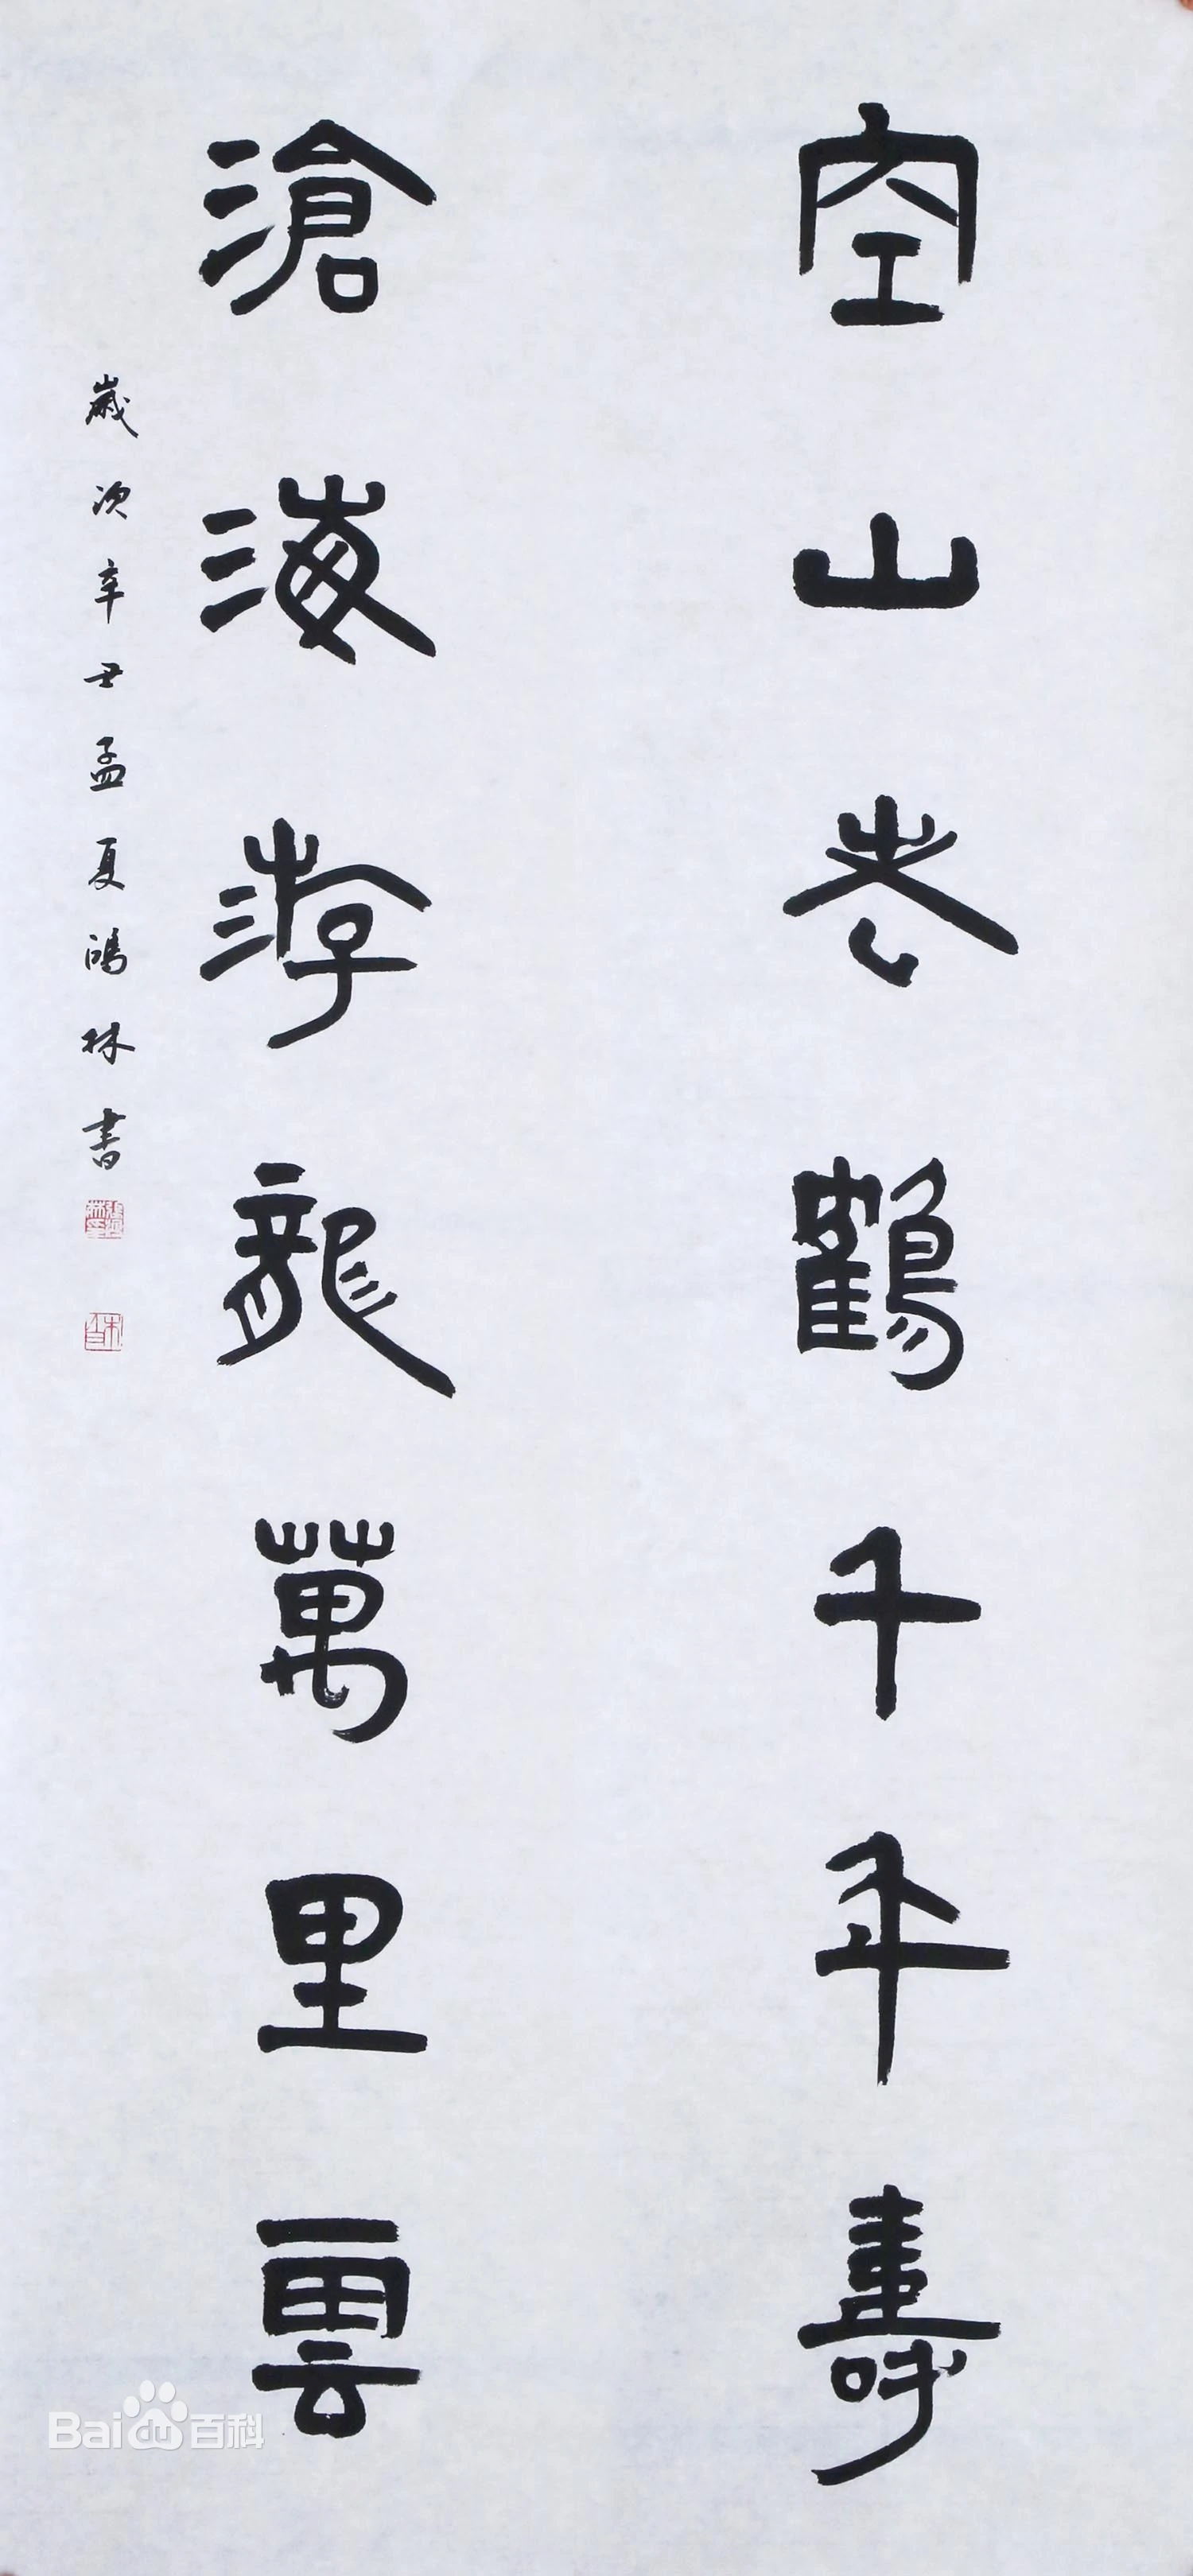 空山老鶴千年壽
滄海游龍萬里雲
歲次辛丑孟夏鴻林書
Baidu百科